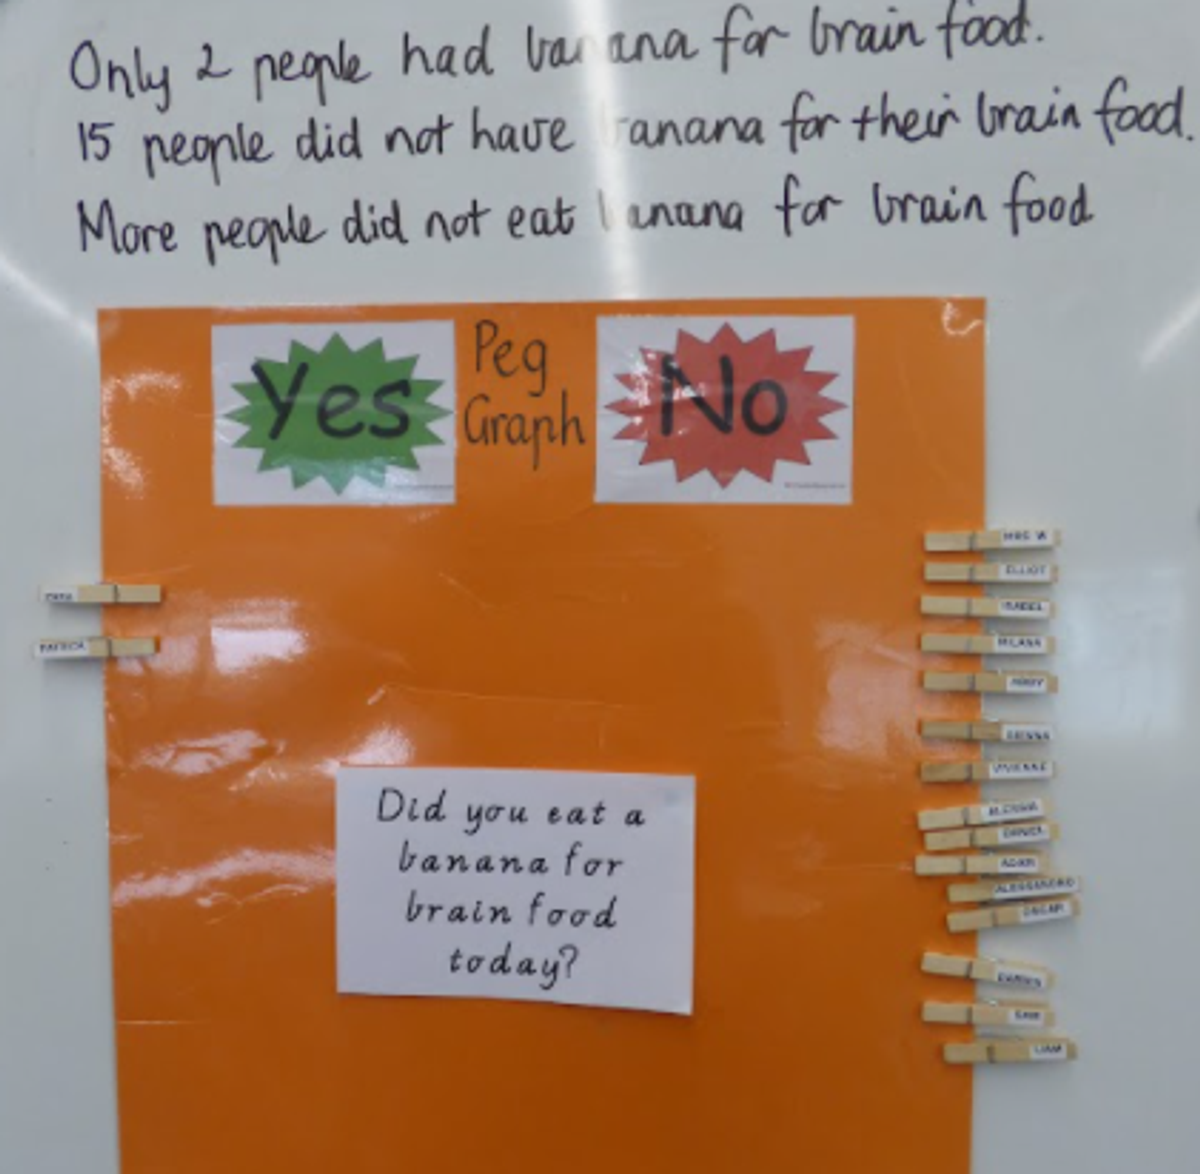 Only 2 people had banana for brain food.
15 people did not have banana for their brain food.
More people did not eat banana for brain food
Yes
Peg
Graph
No
MRS W
ELLIOT
ISABEL
MILANA
PATRICK
SIENNA
VIVIENNE
DANIEL
ADAM
ALESSANDRO
OSCAR
SAM
LIAM
Did you eat a
banana for
brain food
today?